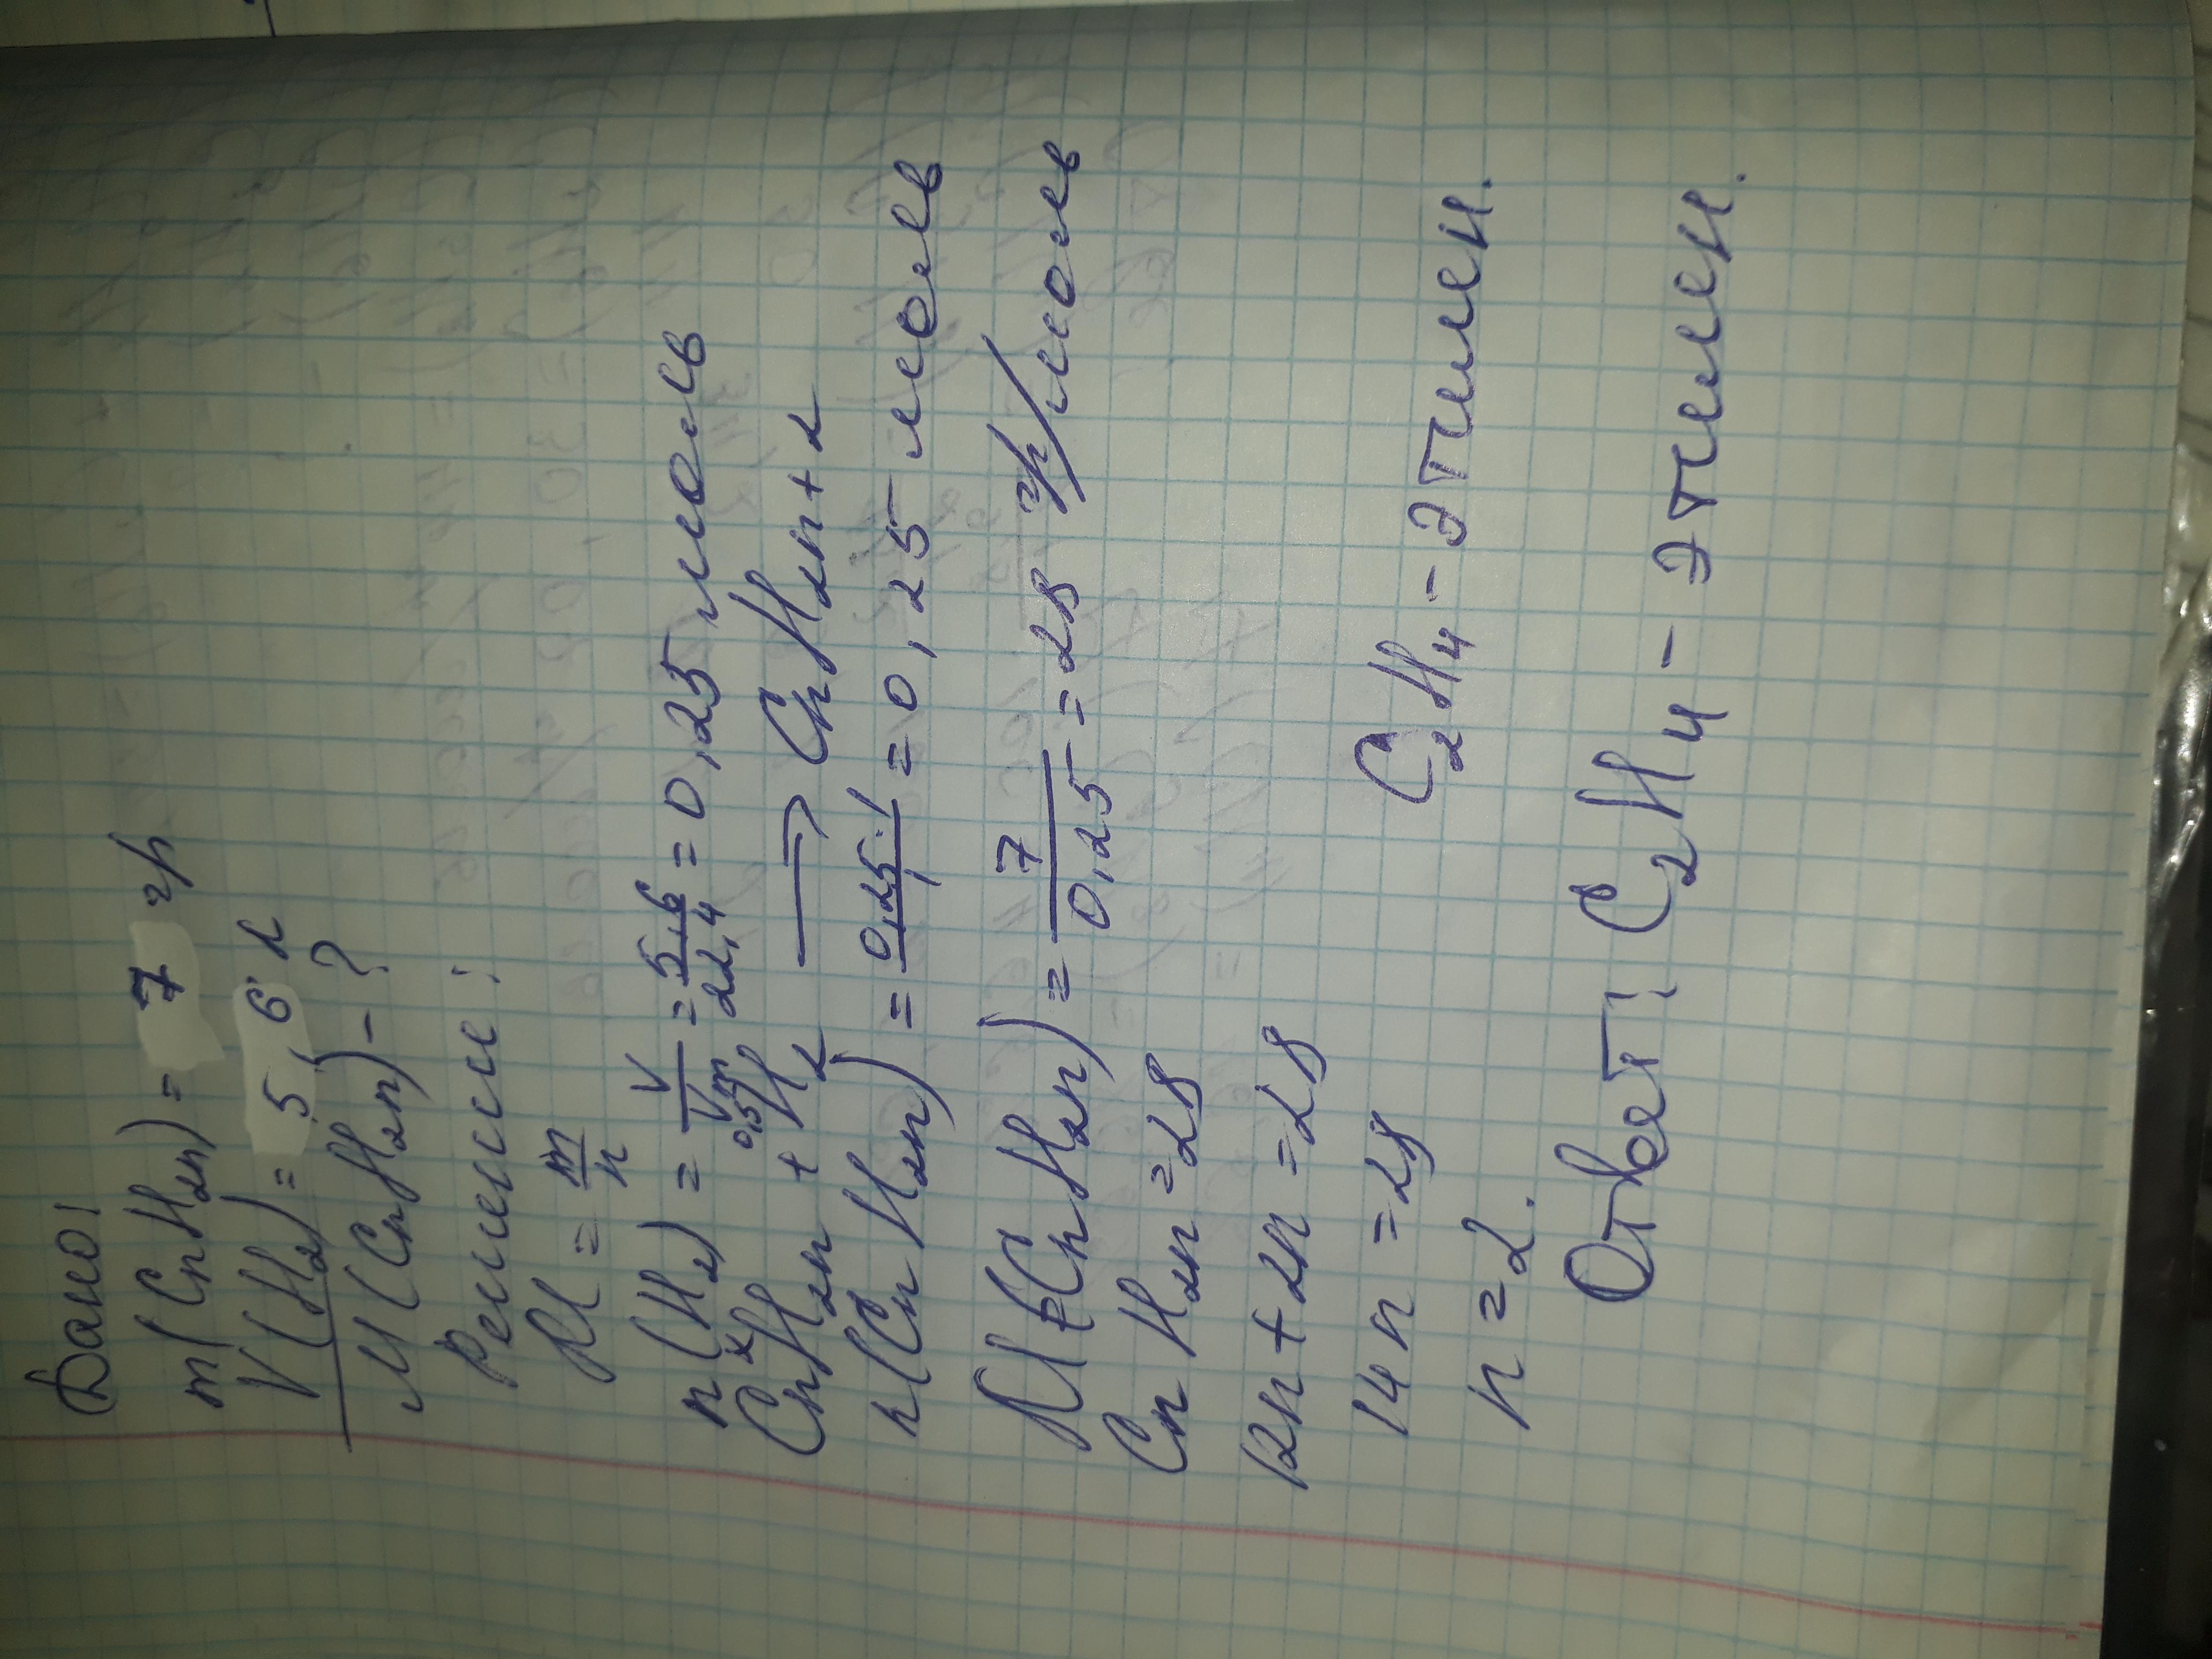 Дано:
m(CnH2n) = 7 гр
V(H2) = 5,6 л
M(CnH2n) - ?
Решение:
M = m/n
n(H2) = V/Vm = 5,6/22,4 = 0,25 моль
x 0,5
CnH2n + H2 → CnH2n+2
n(CnH2n) = 0,25·1/1 = 0,25 моль
M(CnH2n) = 7/0,25 = 28 гр/моль
CnH2n = 28
12n + 2n = 28
14n = 28 C2H4 - этилен.
n = 2.
Ответ: C2H4 - этилен.